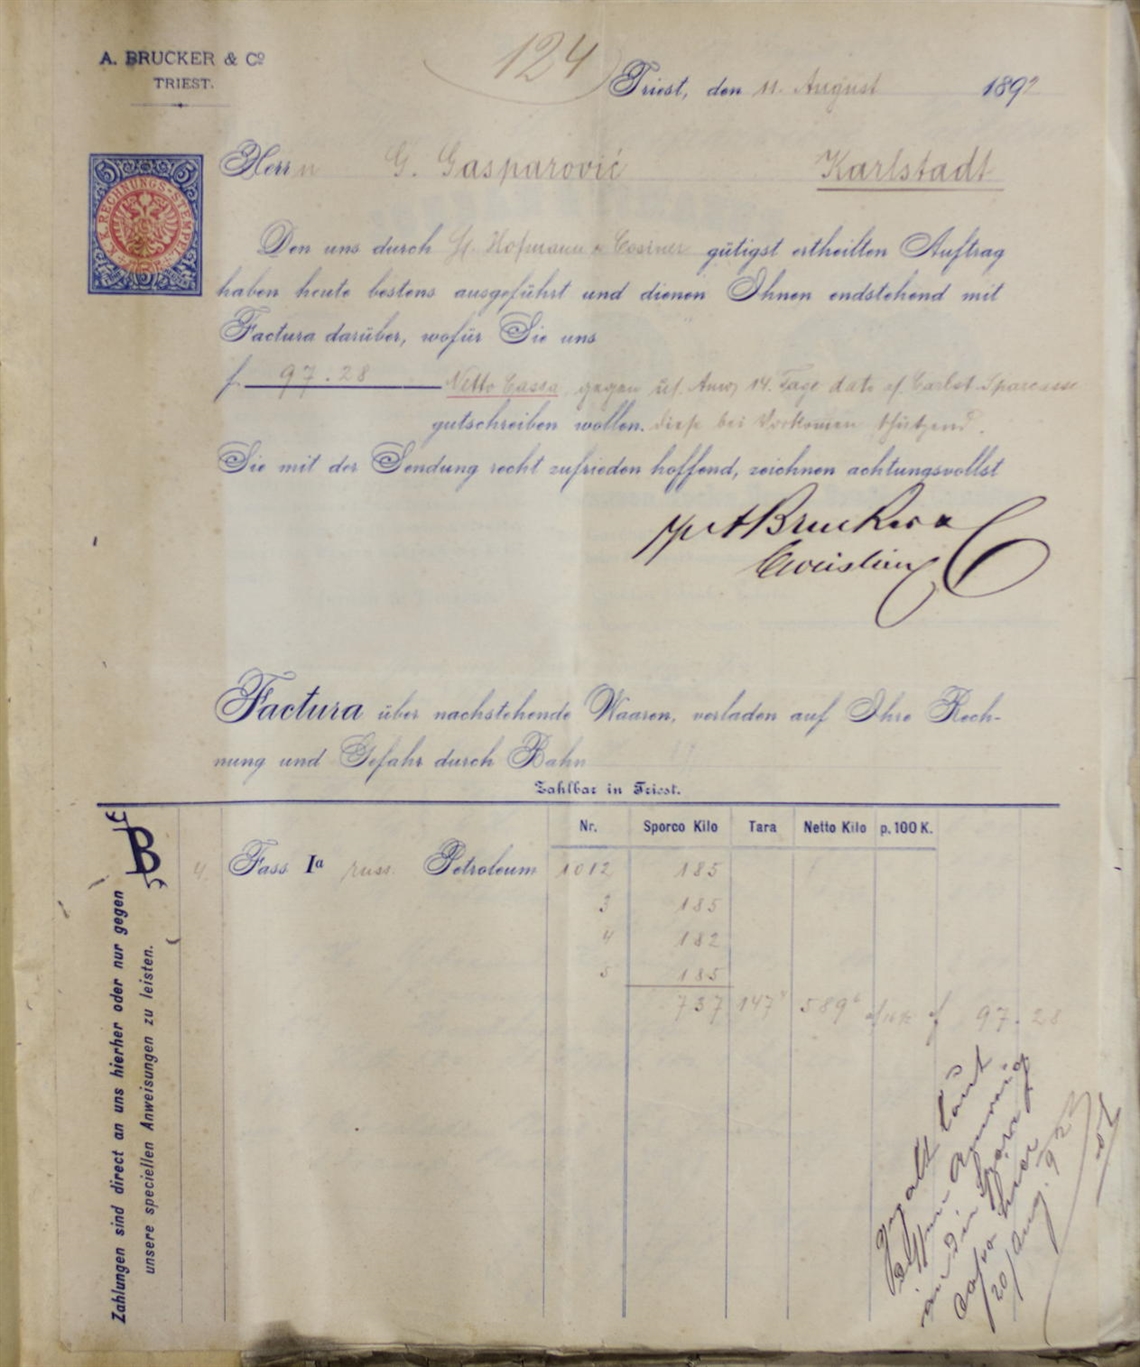 A. BRUCKER & Cº
TRIEST.
124
Triest, den 11. August 189
5 5
K. K. RECHNUNGS-STEMPEL
Herrn G. Gasparović Karlstadt
Den uns durch Hofmann & gütigst ertheilten Auftrag
haben heute bestens ausgeführt und dienen Ihnen endstehend mit
Factura darüber, wofür Sie uns
f. 97.28 Netto Cassa, gegen 14. Tage dato Carlst. Sparcasse
gutschreiben wollen. bei Vorkommen schützend.
Sie mit der Sendung recht zufrieden hoffend, zeichnen achtungsvollst
ABrucker & C
Factura über nachstehende Waaren, verladen auf Ihre Rech-
nung und Gefahr durch Bahn
Zahlbar in Triest.
Nr. Sporco Kilo Tara Netto Kilo p. 100 K.
B
4. Fass Iª russ. Petroleum 1012 185
3 185
4 182
5 185
737 147⁴ 589⁶ f 97.28
Zahlungen sind direct an uns hierher oder nur gegen
unsere speciellen Anweisungen zu leisten.
laut
in die
Cassa hier
20/Aug. 92